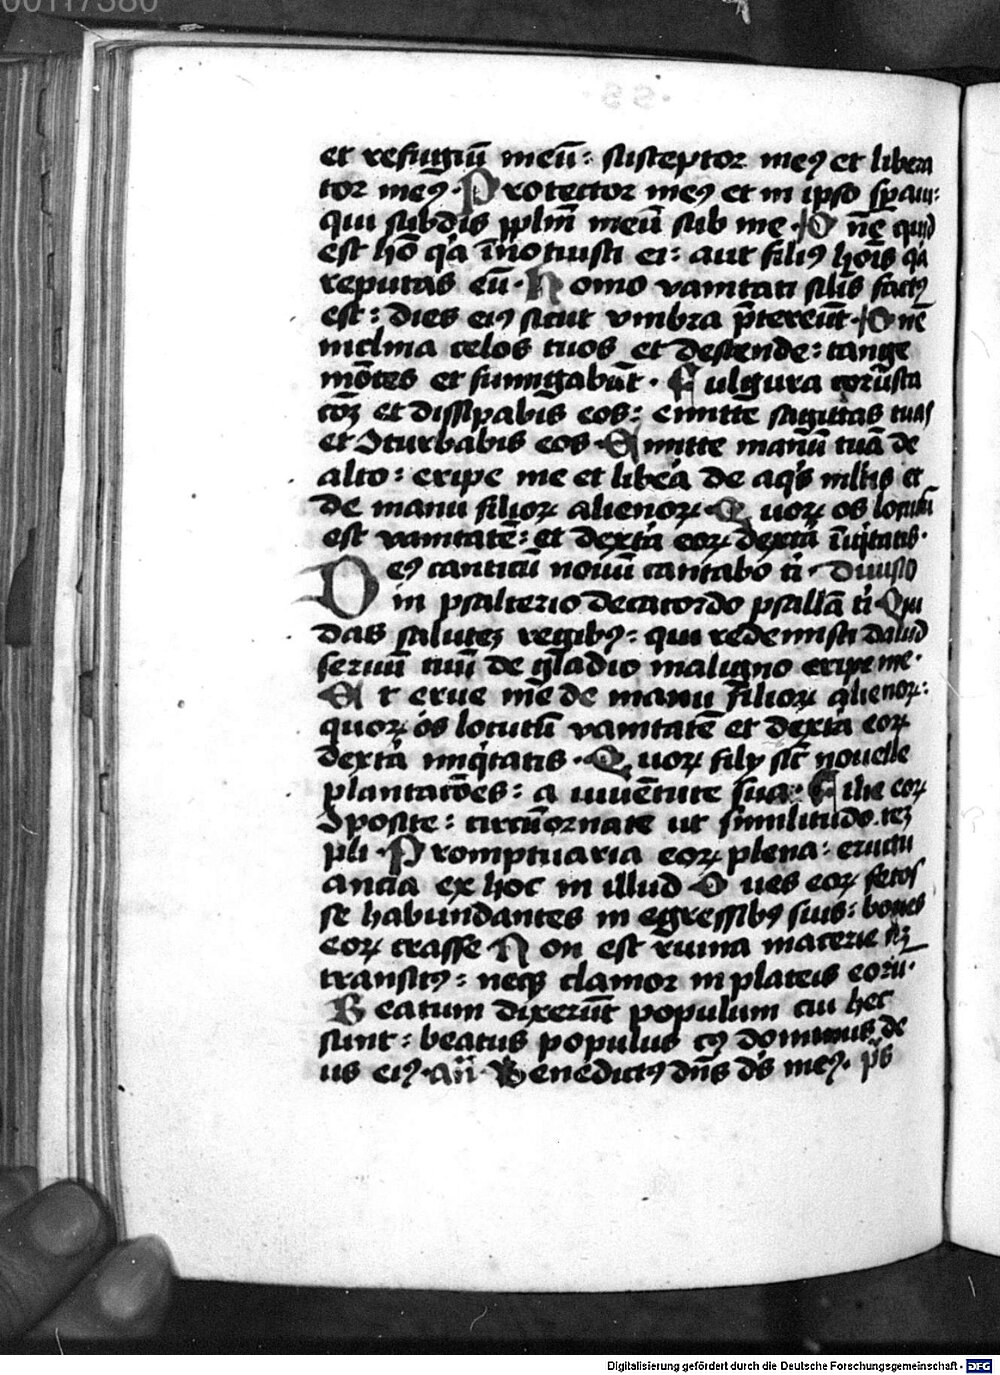 00117380
et refugiū meū: susceptor meꝰ et libera
tor meꝰ. Protector meꝰ et in ipso speraui:
qui subdis pplm̄ meū sub me. Dn̄e quid
est hō q̇a īnotuisti ei: aut filiꝰ hoīs q̇a
reputas eū. Homo vanitati silis factꝰ
est: dies eiꝰ sicut vmbra p̄tereūt. Dn̄e
inclina celos tuos et descende: tange
mōtes et fumigabūt. Fulgura corusca
coꝝ et dissipabis eos: emitte sagittas tuas
et ꝯturbabis eos. Emitte manū tuā de
alto: eripe me et libea de aqis mltis et
de manu filioꝝ alienoꝝ. Quoꝝ os locutū
est vanitatē: et dextȧ eoꝝ dextȧ īiq̇tatis.
Deꝰ canticū nouū cantabo ti. Duuso
in psalterio decacordo psallā ti. Qui
das salutez regibꝰ: qui redemisti dauid
seruū tuū de gladio maligno eripe me.
Et erue me de manu filioꝝ alienoꝝ:
quoꝝ os locutū vanitatē et dextȧ eoꝝ
dextȧ iniq̇tatis. Quoꝝ filij sūt nouelle
plantacōes: a iuuētute sua. Filie eoꝝ
ꝯposite: circūornate ut similitudo tez
pli. Promptuaria eoꝝ plena: eructu
ancia ex hoc in illud. Oues eoꝝ fetos
se habundantes in egressibꝰ suis: boues
eoꝝ crasse. Non est ruina macerie nz
transitꝰ: neqꝫ clamor in plateis eorū.
Beatum dixerūt populum cui hec
sunt: beatus populus cꝰ dominus de
us eiꝰ. an̄. Benedictꝰ dn̄s ds meꝰ. ps
Digitalisierung gefördert durch die Deutsche Forschungsgemeinschaft - DFG